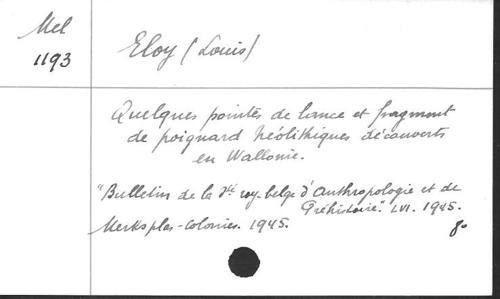 Mel
1193
Eloy (Louis)
Quelques pointes de lance et fragment
de poignard néolithiques découverts
en Wallonie.
"Bulletin de la Sté roy. belge d'Anthropologie et de
Préhistoire". LVI. 1945.
Merksplas-Colonies. 1945. 8º